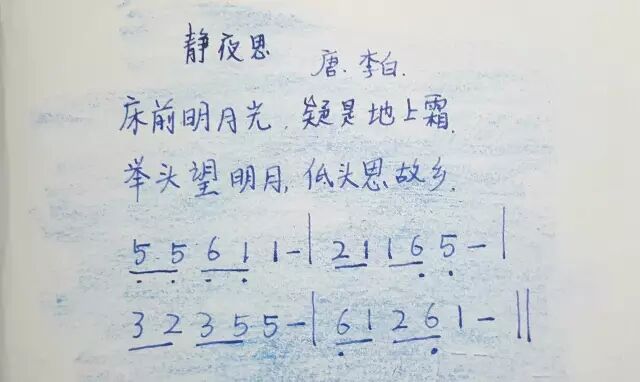 静夜思
唐.李白.
床前明月光,疑是地上霜.
举头望明月,低头思故乡.
5 5 6 1 1 - | 2 1 1 6 5 - |
3 2 3 5 5 - | 6 1 2 6 1 - ||